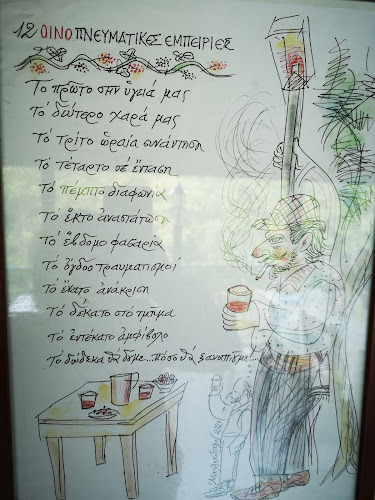 12 ΟΙΝΟΠΝΕΥΜΑΤΙΚΕΣ ΕΜΠΕΙΡΙΕΣ
Το πρῶτο στην ὑγειά μας
Το δεύτερο χαρά μας
Το τρίτο ὡραία συνάντηση
Το τέταρτο σέ ἔπαση
Το πέμπτο διαφωνία
Το ἕκτο ἀναστάτωση
Το ἕβδομο φασαρία
Το ὄγδοο τραυματισμοί
Το ἔνατο ἀνάκριση
Το δέκατο στό τμῆμα
Το ἐντέκατο ἀμφίβολο
Το δώδεκα θά δοῦμε...πόσο θά ξαναπιοῦμε!..